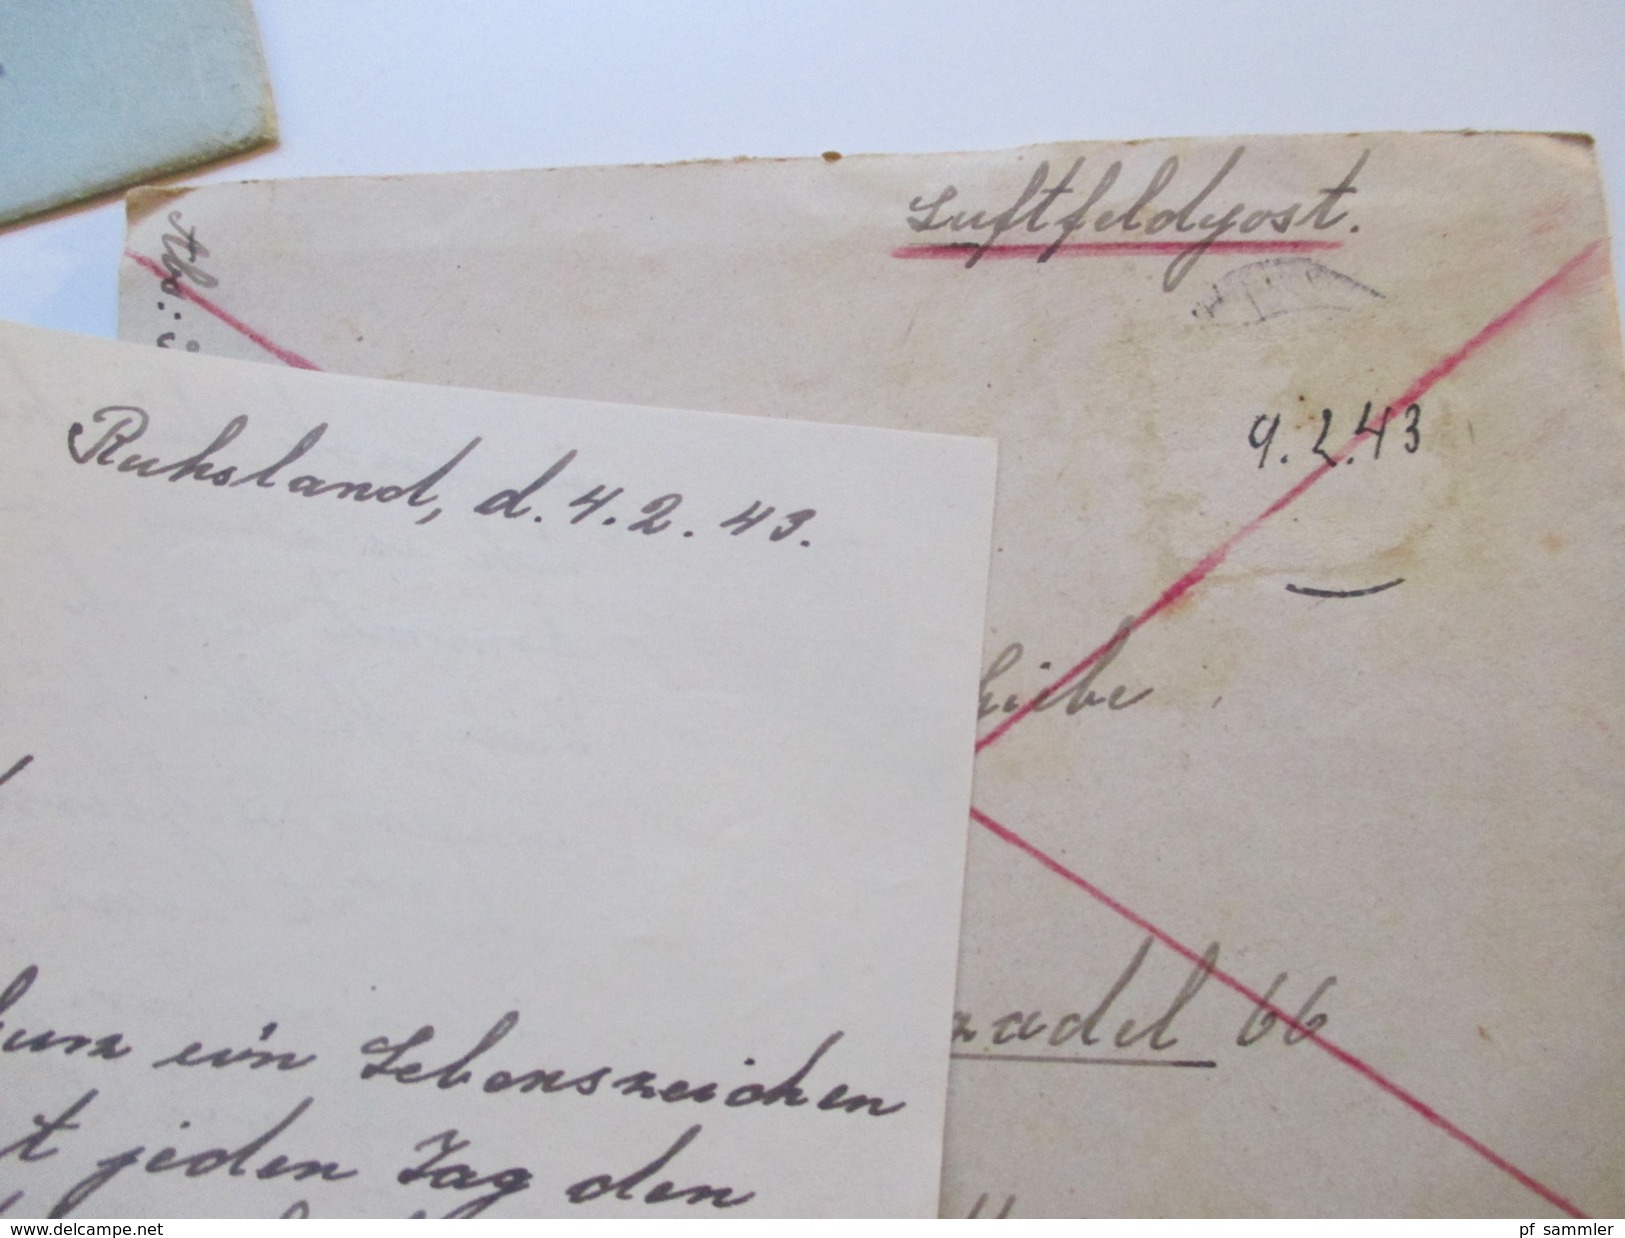 Luftfeldpost.
Abs.:
9.2.43
Ruhsland, d. 4.2.43.
66
kurz ein Lebenszeichen
t jeden Tag den
www.delcampe.net
pf_sammler